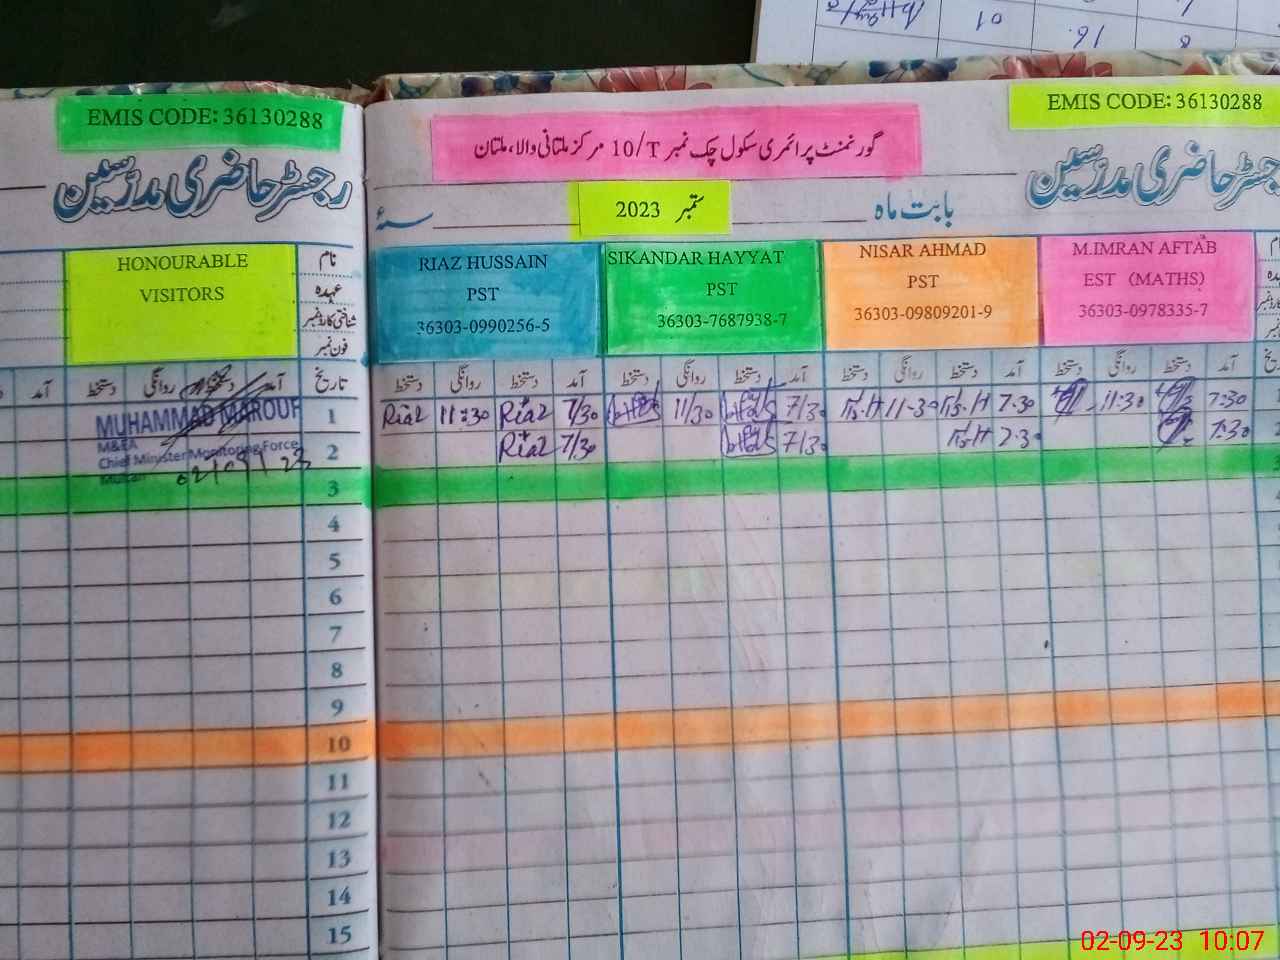 EMIS CODE: 36130288
EMIS CODE: 36130288
گورنمنٹ پرائمری سکول چک نمبر 10/T مرکز ملتانی والا، ملتان
رجسٹر حاضری مدرّسین
رجسٹر حاضری مدرّسین
بابت ماہ
ستمبر 2023
سنہ
HONOURABLE
VISITORS
نام
عہدہ
شناختی کارڈ نمبر
فون نمبر
RIAZ HUSSAIN
PST
36303-0990256-5
SIKANDAR HAYYAT
PST
36303-7687938-7
NISAR AHMAD
PST
36303-09809201-9
M.IMRAN AFTAB
EST (MATHS)
36303-0978335-7
تاریخ آمد دستخط روانگی دستخط آمد
آمد دستخط روانگی دستخط آمد دستخط روانگی دستخط آمد دستخط روانگی دستخط آمد دستخط روانگی دستخط
MUHAMMAD MAROUF
M&EA
Chief Minister Monitoring Force
Multan
02/09/23
1 Riaz 11:30 Riaz 7/30 11/30 7/30 11-30 7.30 11:30 7:30
2 Riaz 7/30 7/30 7.30 7:30
3
4
5
6
7
8
9
10
11
12
13
14
15
01
16.
8
02-09-23 10:07